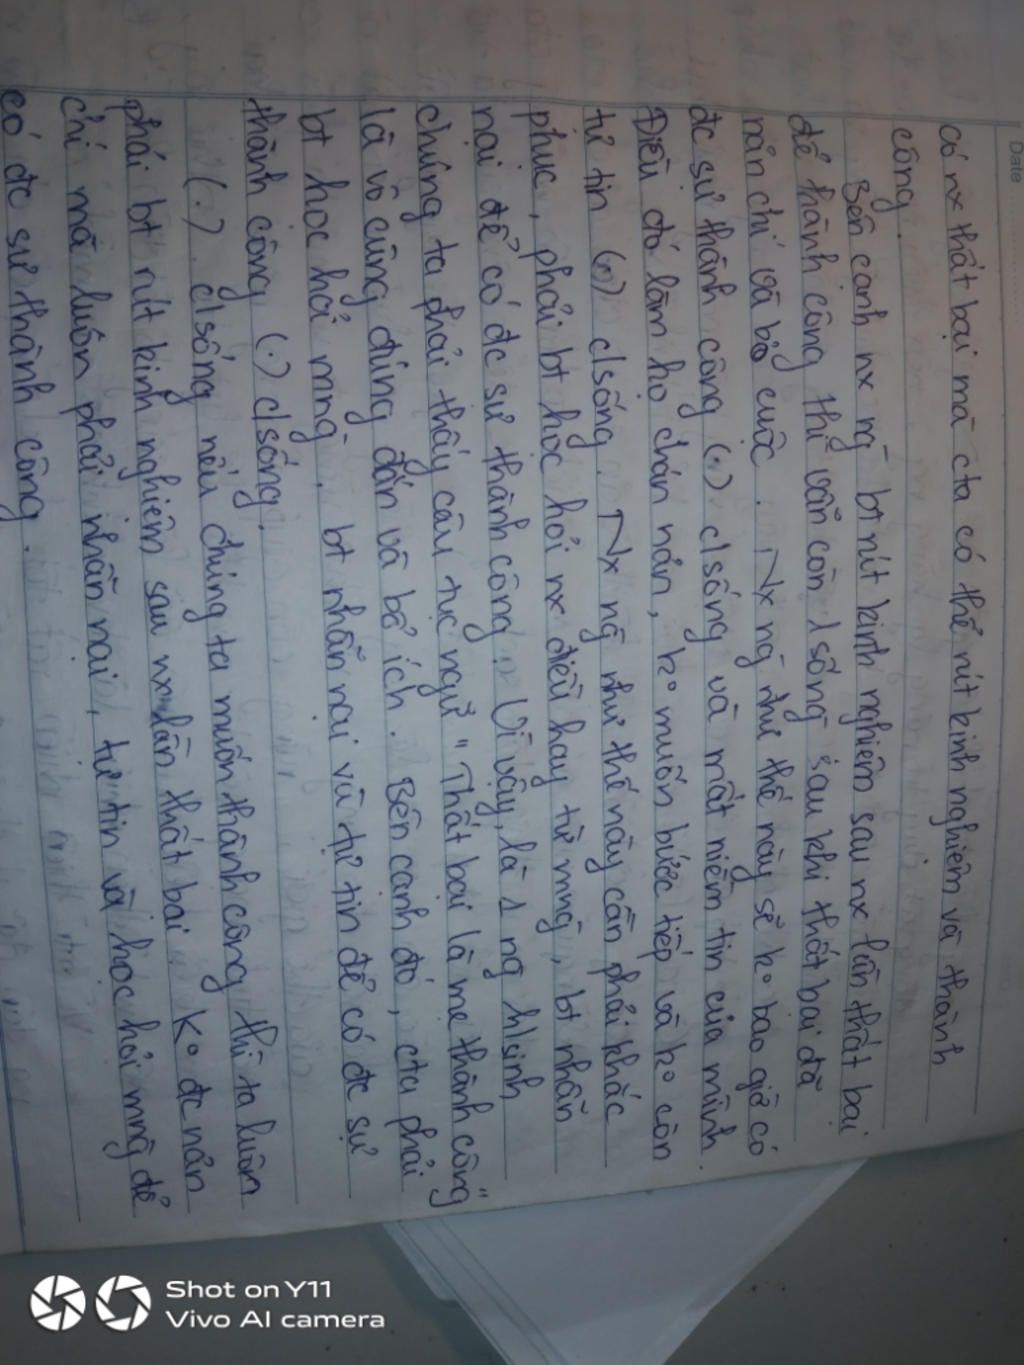 Date
có nx thất bại mà cta có thể rút kinh nghiệm và thành
công.
Bên cạnh nx ng` bt rút kinh nghiệm sau nx lần thất bại
để thành công thì vẫn còn 1 số ng` sau khi thất bại đã
nản chí và bỏ cuộc. Nx ng` như thế này sẽ k° bao giờ có
đc sự thành công (.) c/sống và mất niềm tin của mình.
Điều đó làm họ chán nản, k° muốn bước tiếp và k° còn
tự tin (.) c/sống. Nx ng` như thế này cần phải khắc
phục, phải bt học hỏi nx điều hay từ mng`, bt nhẫn
nại để có đc sự thành công. Vì vậy, là 1 ng` h/sinh
chúng ta phải thấy câu tục ngữ "Thất bại là mẹ thành công"
là vô cùng đúng đắn và bổ ích. Bên cạnh đó, cta phải
bt học hỏi mng`, bt nhẫn nại và tự tin để có đc sự
thành công (.) c/sống.
(.) c/sống nếu chúng ta muốn thành công thì ta luôn
phải bt rút kinh nghiệm sau nx lần thất bại k° đc nản
chí mà luôn phải nhẫn nại, tự tin và học hỏi mng` để
có đc sự thành công.
Shot on Y11
Vivo AI camera